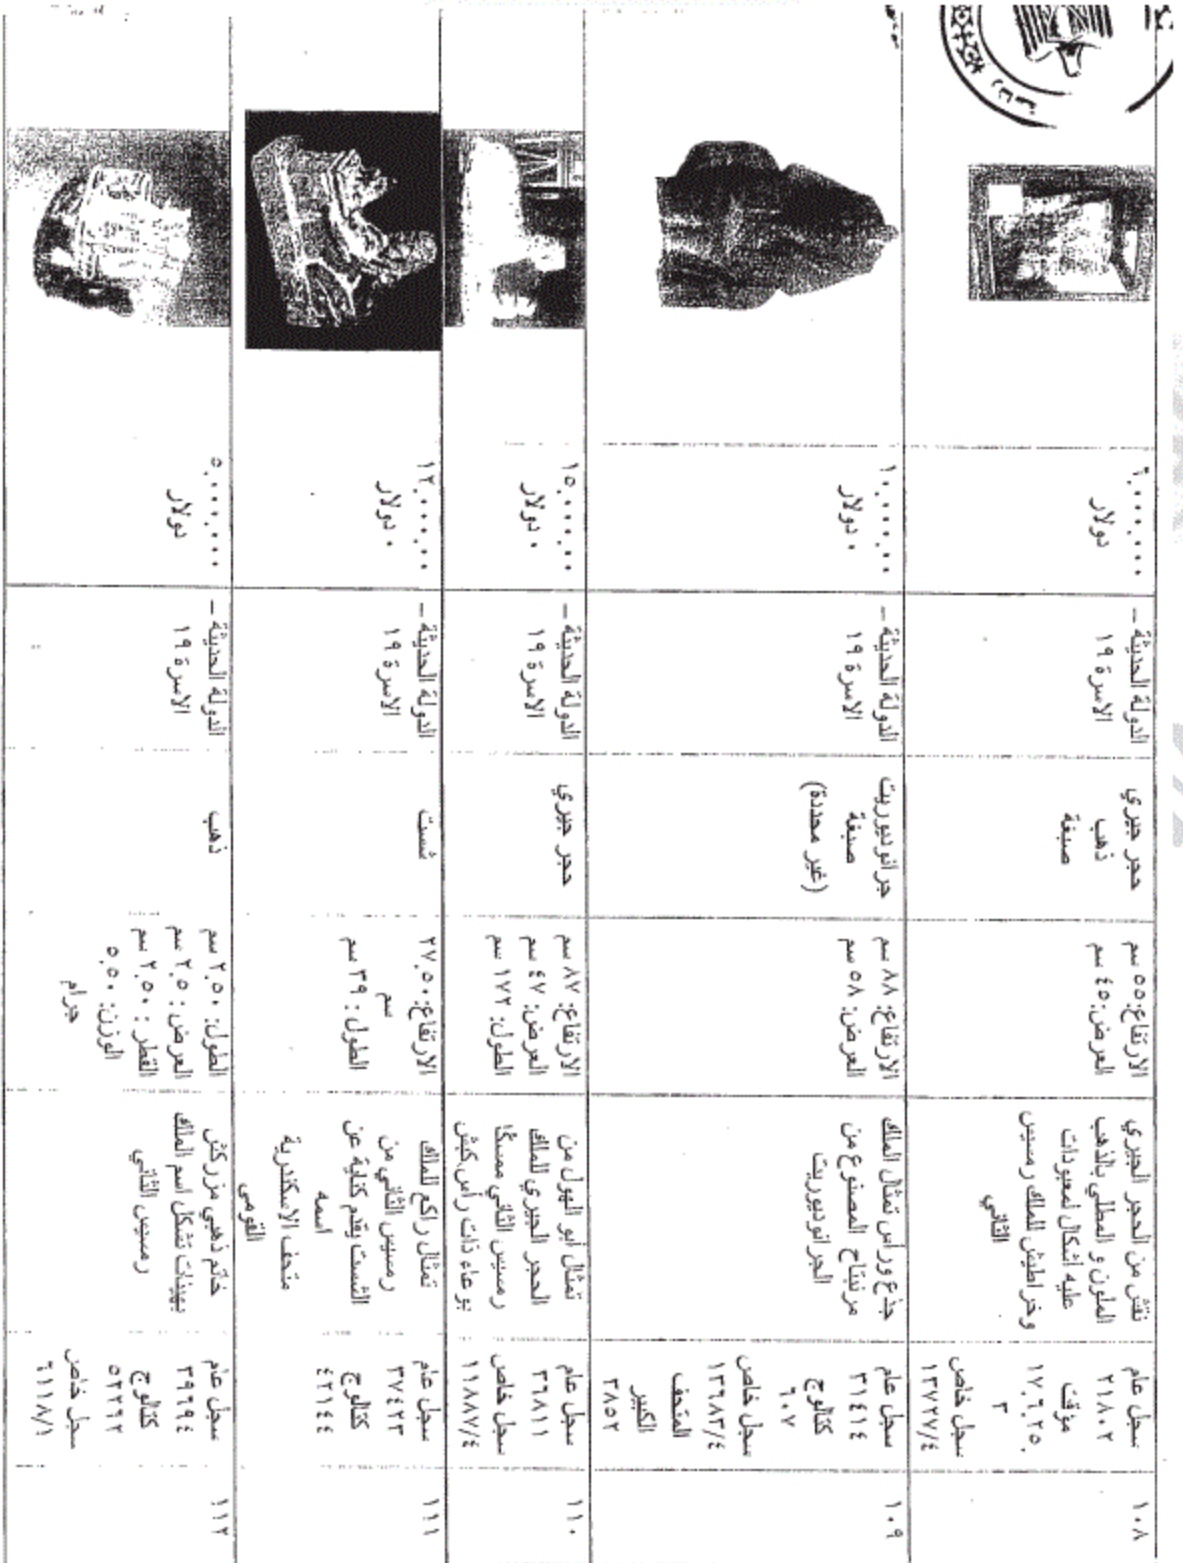 ١٠٨
سجل عام
٢١٨٠٢
مؤقت
١٧.٦.٢٥.
٣
سجل خاص
١٣٧٢٧/٤
نقش من الحجر الجيري
الملون و المطلي بالذهب
عليه اشكال لمعبودات
وخراطيش للملك رمسيس
الثاني
الارتفاع:٥٥ سم
العرض:٤٥ سم
حجر جيري
ذهب
صبغة
الدولة الحديثة –
الاسرة ١٩
دولار
١٠٩
سجل عام
٣١٤١٤
كتالوج
٦٠٧
سجل خاص
١٣٦٨٣/٤
المتحف
الكبير
٣٨٥٢
جذع وراس تمثال الملك
مرنبتاح المصنوع من
الجرانوديوريت
الارتفاع: ٨٨ سم
العرض: ٥٨ سم
جرانوديوريت
صبغة
(غير محددة)
الدولة الحديثة –
الاسرة ١٩
١٠.٠٠٠.٠٠
٠ دولار
١١٠
سجل عام
٣٦٨١١
سجل خاص
١١٨٨٧/٤
تمثال أبو الهول من
الحجر الجيري للملك
رمسيس الثاني ممسكًا
بوعاء ذات رأس كبش
الارتفاع: ٨٧ سم
العرض: ٤٧ سم
الطول: ١٧٢ سم
حجر جيري
الدولة الحديثة –
الاسرة ١٩
١٥.٠٠٠.٠٠
٠ دولار
١١١
سجل عام
٣٧٤٢٣
كتالوج
٤٢١٤٤
تمثال راكع للملك
رمسيس الثاني من
الشست يقدم كناية عن
اسمه
متحف الاسكندرية
القومي
الارتفاع: ٢٧.٥٠
سم
الطول : ٣٩ سم
شست
الدولة الحديثة –
الاسرة ١٩
١٢.٠٠٠.٠٠
٠ دولار
١١٢
سجل عام
٣٩٦٩٤
كتالوج
٥٢٢٦٢
سجل خاص
٦١١٨/١
خاتم ذهبي مزركش
بهيئات تشكل اسم الملك
رمسيس الثاني
الطول: ٢.٥٠ سم
العرض : ٢.٥ سم
القطر : ٢.٥٠ سم
الوزن: ٥.٥٠
جرام
ذهب
الدولة الحديثة –
الاسرة ١٩
٥.٠٠٠.٠٠٠
دولار